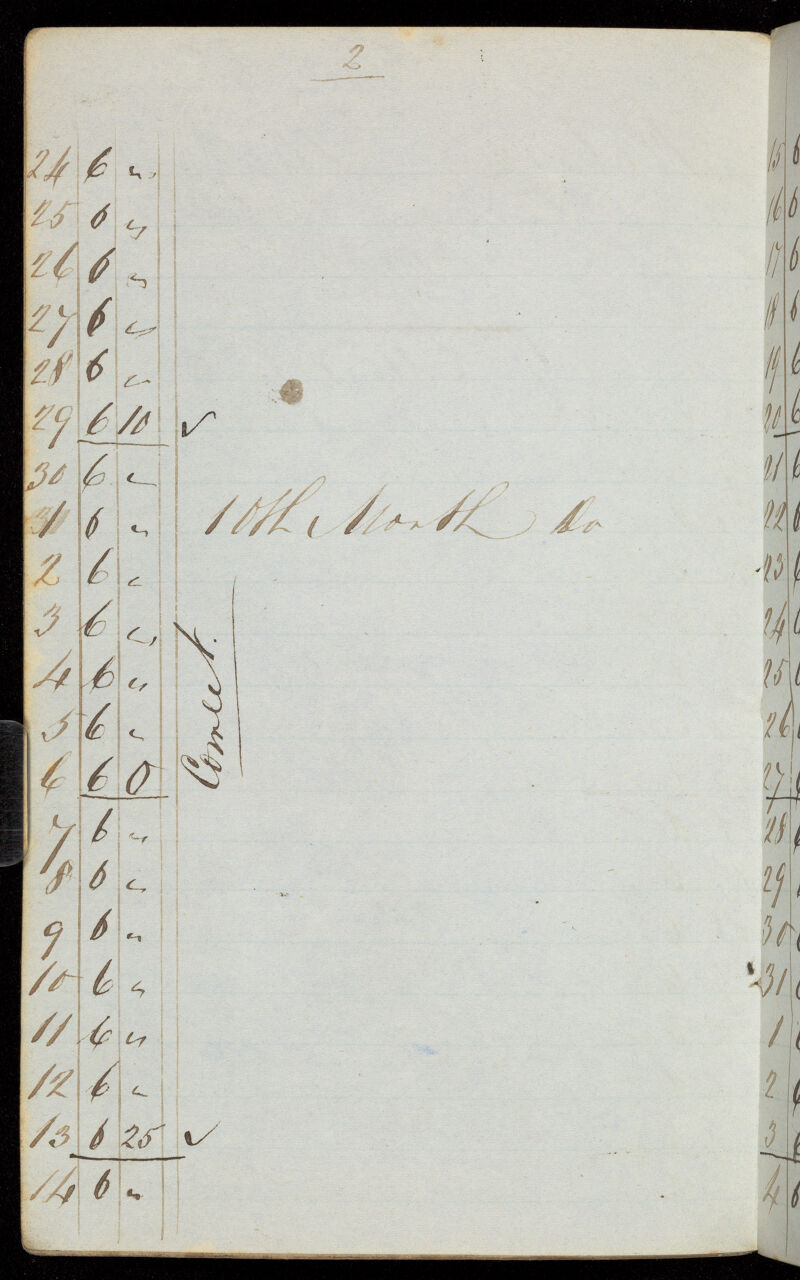 2
24 6 "
25 6 "
26 6 "
27 6 "
28 6 "
29 6 10 ✓
30 6 "
1 6 " 10th Month Do
2 6 "
3 6 "
4 6 "
5 6 "
6 6 0
Correct.
7 6 "
8 6 "
9 6 "
10 6 "
11 6 "
12 6 "
13 6 25 ✓
14 6 "
15 6
16 6
17 6
18 6
19 6
20 6
21 6
22 6
23 6
24 6
25 6
26
27 6
28 6
29
30 6
31 6
1 6
2 6
3 6
4 6